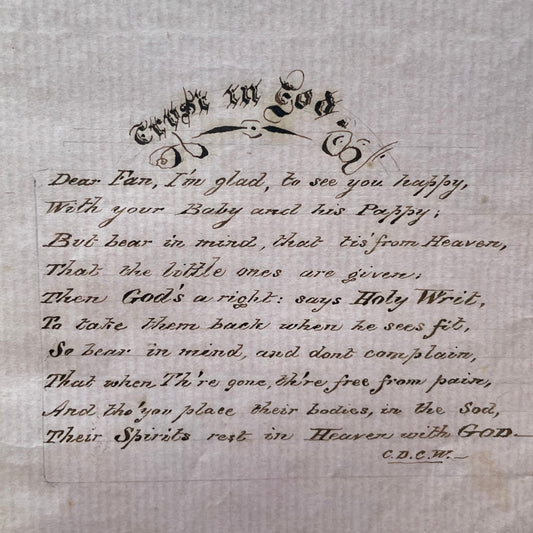 Trust in God.
Dear Fan, I'm glad, to see you happy,
With your Baby and his Pappy;
But bear in mind, that tis' from Heaven,
That the little ones are given;
Then God's a right: says Holy Writ,
To take them back when he sees fit,
So bear in mind, and dont complain,
That when Th're gone, th're free from pain,
And tho' you place their bodies, in the Sod,
Their Spirits rest in Heaven with GOD.—
C.D.C.W.—